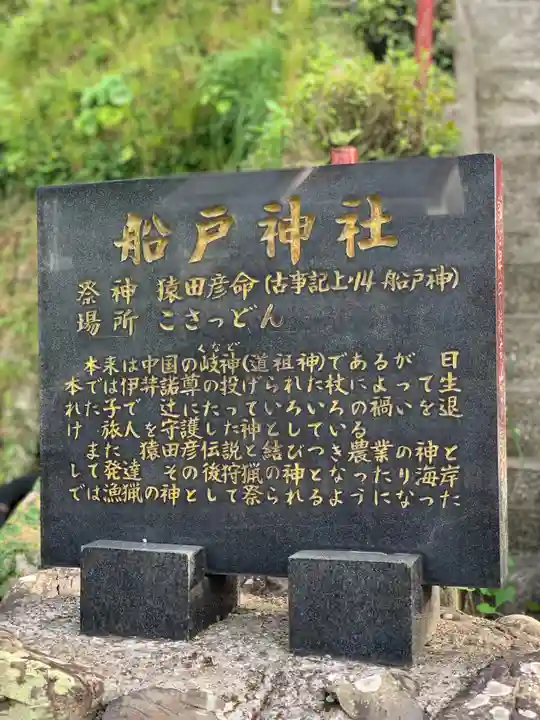 船戸神社
祭神 猿田彦命(古事記上・14 船戸神)
場所 こさっどん
くなど
本来は中国の岐神(道祖神)であるが 日
本では伊弉諾尊の投げられた杖によって生
れた子で 辻にたっていろいろの禍いを退
け 旅人を守護した神としている
また 猿田彦伝説と結びつき農業の神と
して発達 その後狩猟の神となったり海岸
では漁猟の神として祭られるようになった